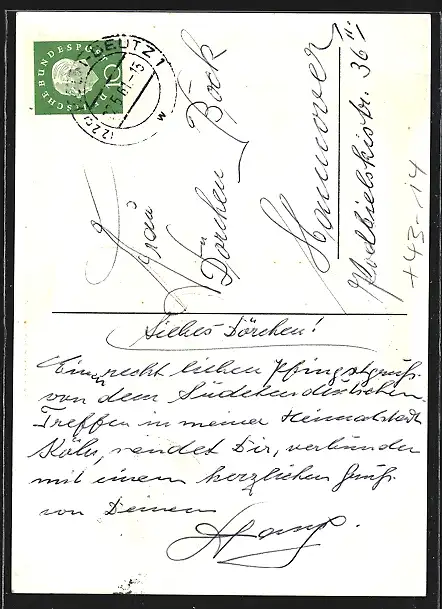 DEUTSCHE BUNDESPOST
10
DEUTZ 1
(22c)
w
Frau
Dörchen Bock
Hannover
Podbielskistr. 36 II
+43-14
Liebes Dörchen!
Einen recht lieben Pfingstgruß
von dem Sudetendeutschen
Treffen in meiner Heimatstadt
Köln, sendet Dir, verbunden
mit einem herzlichen Gruß
von Deinem